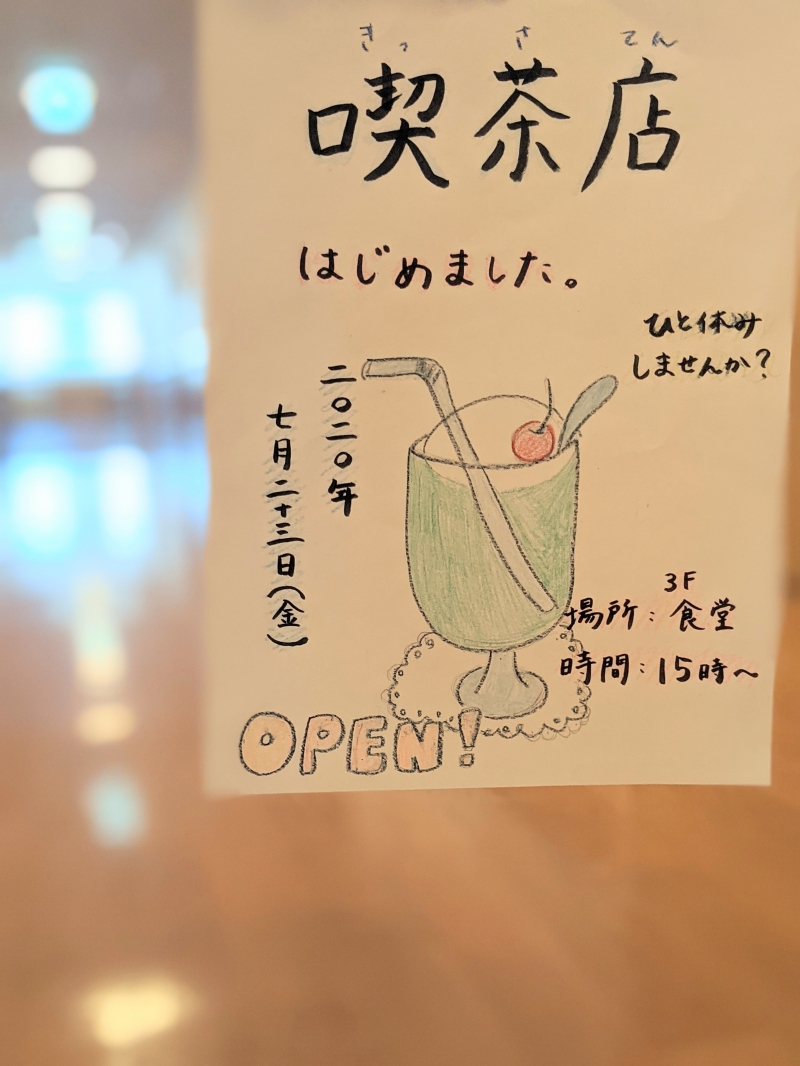 きっさてん
喫茶店
はじめました。
ひと休み
しませんか?
二〇二〇年
七月二十三日(金)
3F
場所:食堂
時間:15時~
OPEN!